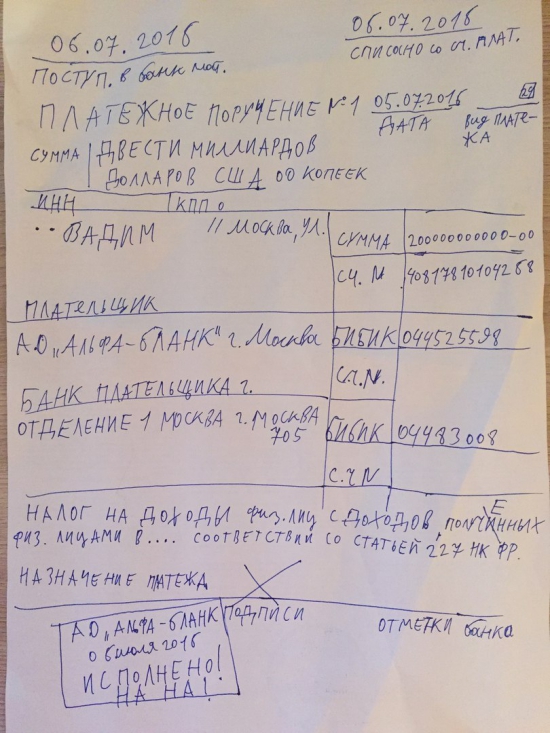 06.07.2016
06.07.2016
ПОСТУП. в банк
СПИСАНО СО СЧ. ПЛАТ.
ПЛАТЕЖНОЕ ПОРУЧЕНИЕ №1 05.07.2016 29
ДАТА
ВИД ПЛАТЕ-
ЖА
СУММА ДВЕСТИ МИЛЛИАРДОВ
ДОЛЛАРОВ США 00 КОПЕЕК
ИНН КПП 0
ВАДИМ // МОСКВА, УЛ.
СУММА 200000000000-00
СЧ. № 40817810104268
ПЛАТЕЛЬЩИК
АО „АЛЬФА-БЛАНК" г. Москва БИБИК 044525598
СЧ. №.
БАНК ПЛАТЕЛЬЩИКА г.
ОТДЕЛЕНИЕ 1 МОСКВА г. МОСКВА
705
БИБИК 04483008
СЧ №
НАЛОГ НА ДОХОДЫ ФИЗ. ЛИЦ С ДОХОДОВ, ПОЛУЧЕННЫХ
ФИЗ. ЛИЦАМИ В.... СООТВЕТСТВИИ СО СТАТЬЕЙ 227 НК ФР.
НАЗНАЧЕНИЕ ПАТЕЖДА
ПОДПИСИ
ОТМЕТКИ банка
АО „АЛЬФА-БЛАНК
06 июля 2016
ИСПОЛНЕНО!
НА НА!